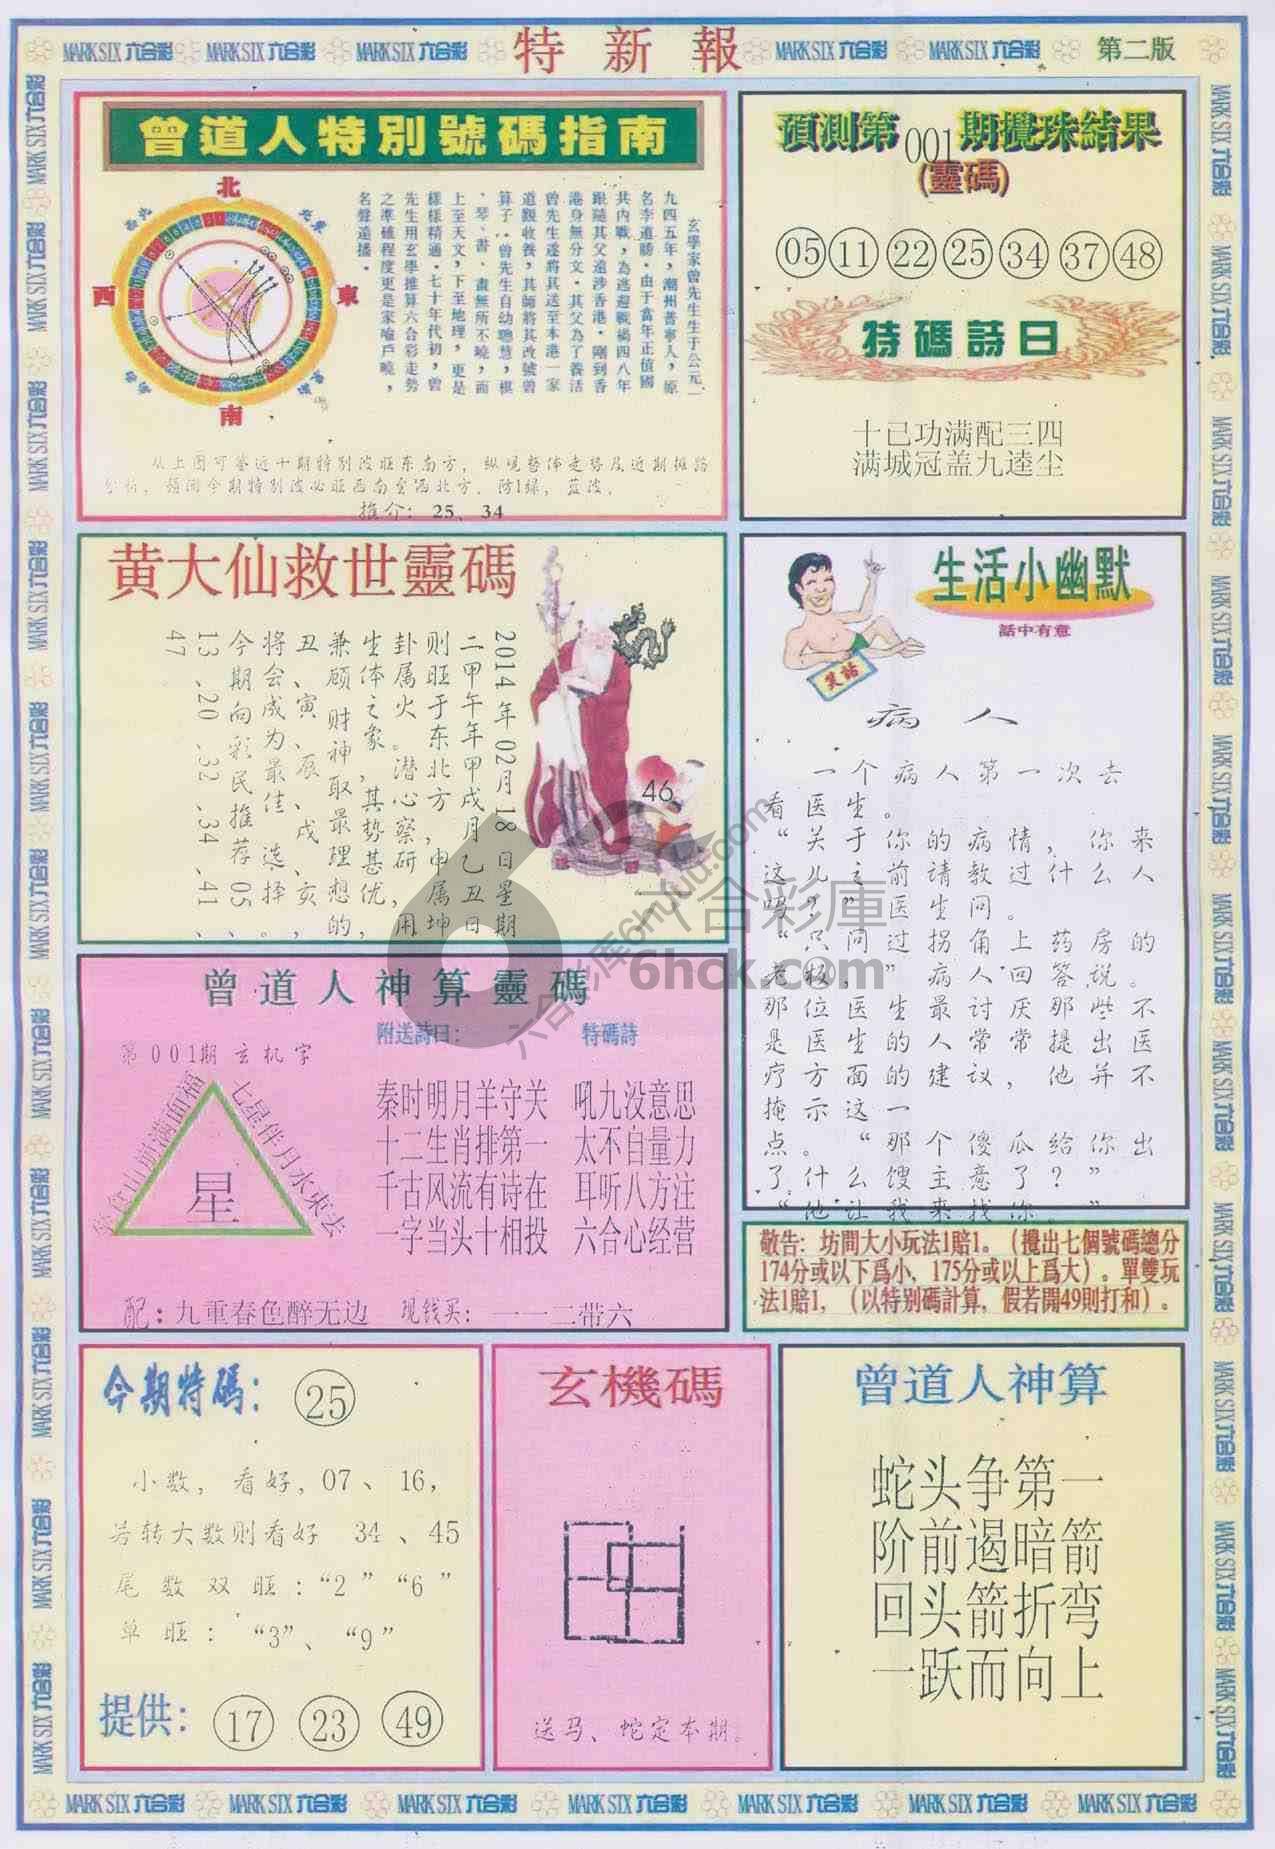 MARK SIX 六合彩 MARK SIX 六合彩 MARK SIX 六合彩 特新報 MARK SIX 六合彩 MARK SIX 六合彩 第二版
曾道人特別號碼指南
北
東
南
西
玄學家曾先生生于公元一
九四五年，潮州普寧人，原
名李道勝。由于當年正值國
共内戰，為逃避戰禍四八年
跟隨其父遠涉香港。剛到香
港身無分文。其父為了養活
曾先生遂將其送至本港一家
道觀收養，其師將其改號曾
算子。曾先生自幼聰慧，棋
、琴、書、畫無所不曉，而
上至天文，下至地理，更是
樣樣精通。七十年代初，曾
先生用玄學推算六合彩走勢
之準確程度更是家喻戶曉，
名聲遠播。
从上图可鉴近十期特别波旺东南方，纵观整体走势及近期推路
分析，预测今期特别波必旺西南至西北方．防1绿，蓝波，
推介：25、34
預測第001期攪珠結果
(靈碼)
05 11 22 25 34 37 48
特碼詩曰
十已功满配三四
满城冠盖九逵尘
黄大仙救世靈碼
2014年02月18日星期
二甲午年甲戌月乙丑日
则旺于东北方，申属坤
卦属火。潜心察研，用
生体之象，其势甚优，
兼顾财神取最理想的，
丑、寅、辰、戌、亥，
将会成为最佳选择。
今期向彩民推荐05、
13、20、32、34、41、
47
46
生活小幽默
話中有意
笑話
病人
一个病人第一次去
看医生。
“关于你的病情，你来
这儿之前请教过什么人
吗？”医生问。
“只问过拐角上药房的
老板，”病人回答说。
那位医生最讨厌那些不
是医生的人常常提出医
疗方面的建议，他并不
掩示这一
点。“那个傻瓜给你出
了什么馊主意了？”
“他让我来找你。”
曾道人神算靈碼
附送詩曰： 特碼詩
第001期玄机字
七星伴月水東去
星
秦时明月羊守关 吼九没意思
十二生肖排第一 太不自量力
千古风流有诗在 耳听八方注
一字当头十相投 六合心经营
配：九重春色醉无边 现钱买：一一二带六
敬告：坊間大小玩法1賠1。（攪出七個號碼總分
174分或以下爲小，175分或以上爲大）。單雙玩
法1賠1，（以特別碼計算，假若開49則打和）。
今期特碼： 25
小数，看好，07、16，
若转大数则看好 34、45
尾数双旺：“2”“6”
单旺：“3”、“9”
提供： 17 23 49
玄機碼
送马、蛇定本期。
曾道人神算
蛇头争第一
阶前遏暗箭
回头箭折弯
一跃而向上
六合彩庫
6hck.com
六合彩库6huu.com
MARK SIX 六合彩 MARK SIX 六合彩 MARK SIX 六合彩 MARK SIX 六合彩 MARK SIX 六合彩 MARK SIX 六合彩 MARK SIX 六合彩